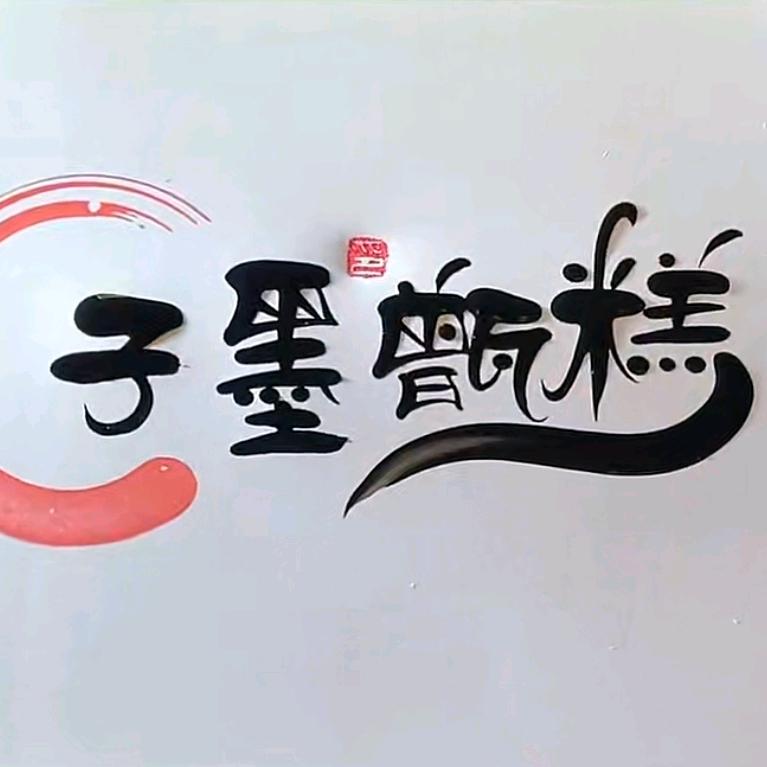 子墨甑糕